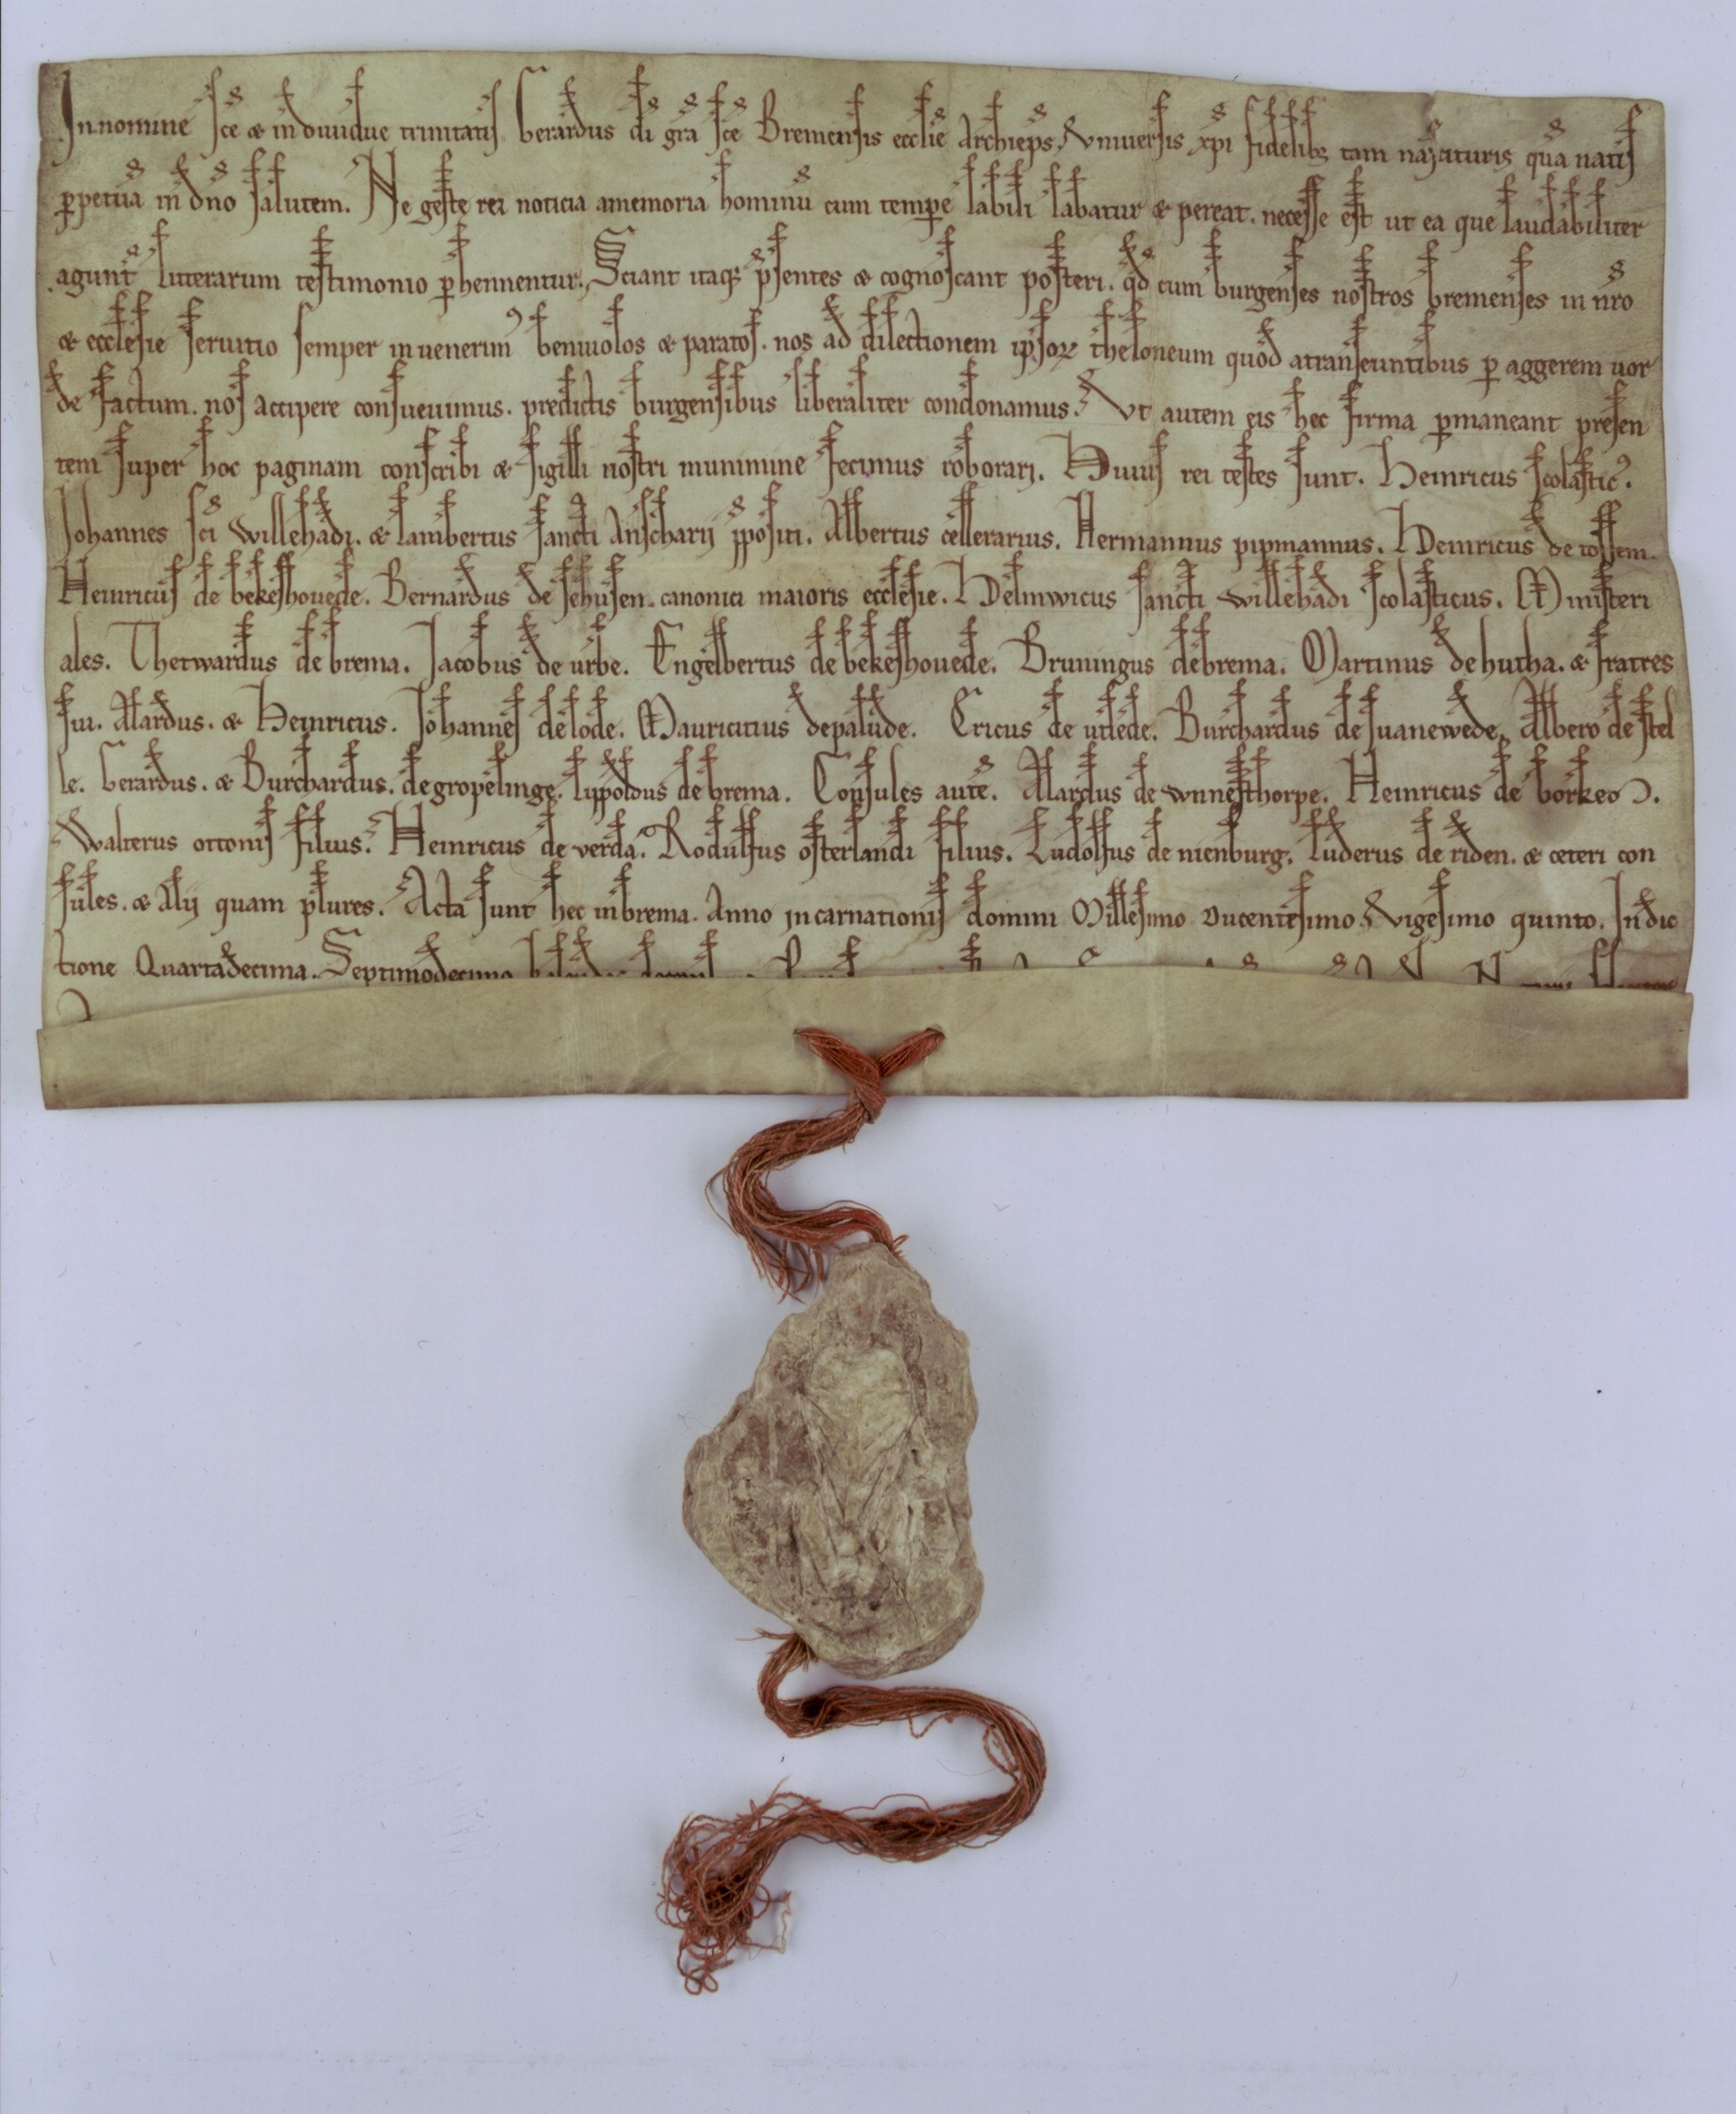 In nomine sce & indiuidue trinitatis. Gerardus di gra sce Bremensis ecclie Archieps. Vniuersis xpi fidelib; tam nascituris qua natis
ppetua in dno salutem. Ne geste rei noticia a memoria hominu cum tempe labili labatur & pereat. necesse est ut ea que laudabiliter
agunt litterarum testimonio phennentur. Sciant itaq; psentes & cognoscant posteri. qd cum burgenses nostros bremenses in nro
& ecclesie seruitio semper inuenerim beniuolos & paratos. nos ad dilectionem ipsoꝝ theloneum quod a transeuntibus p aggerem uor
de factum. nos accipere consueuimus. predictis burgensibus liberaliter condonamus. Vt autem eis hec firma pmaneant presen
tem super hoc paginam conscribi & sigilli nostri munimine fecimus roborari. Huius rei testes sunt. Heinricus scolastic9.
Johannes sci willehadi. & lambertus sancti Anscharij ppositi. Albertus cellerarius. Hermannus pipmannus. Heinricus de tossem.
Heinricus de bekeshouede. Bernardus de sehusen. canonici maioris ecclesie. Helmwicus sancti willehadi scolasticus. Ministeri
ales. Thetwardus de brema. Jacobus de urbe. Engelbertus de bekeshouede. Bruningus de brema. Martinus de hutha. & fratres
sui. Alardus. & Heinricus. Johannes de lode. Mauricitius de palude. Ericus de utlede. Burchardus de suanewede. Albero de stel
le. Gerardus. & Burchardus. de gropelinge. lippoldus de brema. Consules aute. Alardus de wnnesthorpe. Heinricus de borken.
Walterus ottonis filius. Heinricus de verda. Rodulfus osterlandi filius. Ludolfus de nienburg. luderus de riden. & ceteri con
sules. & alij quam plures. Acta sunt hec in brema. Anno incarnationis domini Millesimo Ducentesimo Vigesimo quinto. Indic
tione Quartadecima. Septimodecimo